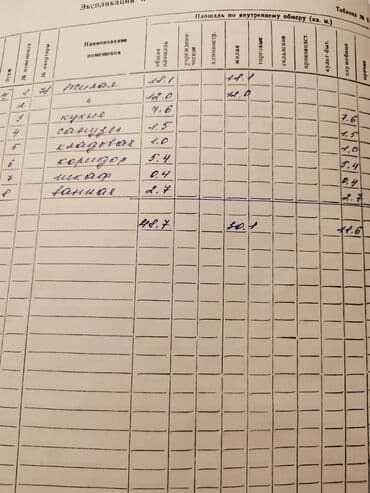 Экспликация
Таблица № 1
Площадь по внутреннему обмеру (кв. м.)
Этаж № помещения № квартиры Наименование помещения общая площадь учрежденческие администр. жилая торговые складские производст. культ-быт. служебные прочие
1 жилая 18.1 18.1
2 " 12.0 12.0
3 кухня 7.6 7.6
4 санузел 1.5 1.5
5 кладовая 1.0 1.0
6 коридор 5.4 5.4
7 шкаф 0.4 0.4
8 ванная 2.7 2.7
48.7 30.1 18.6